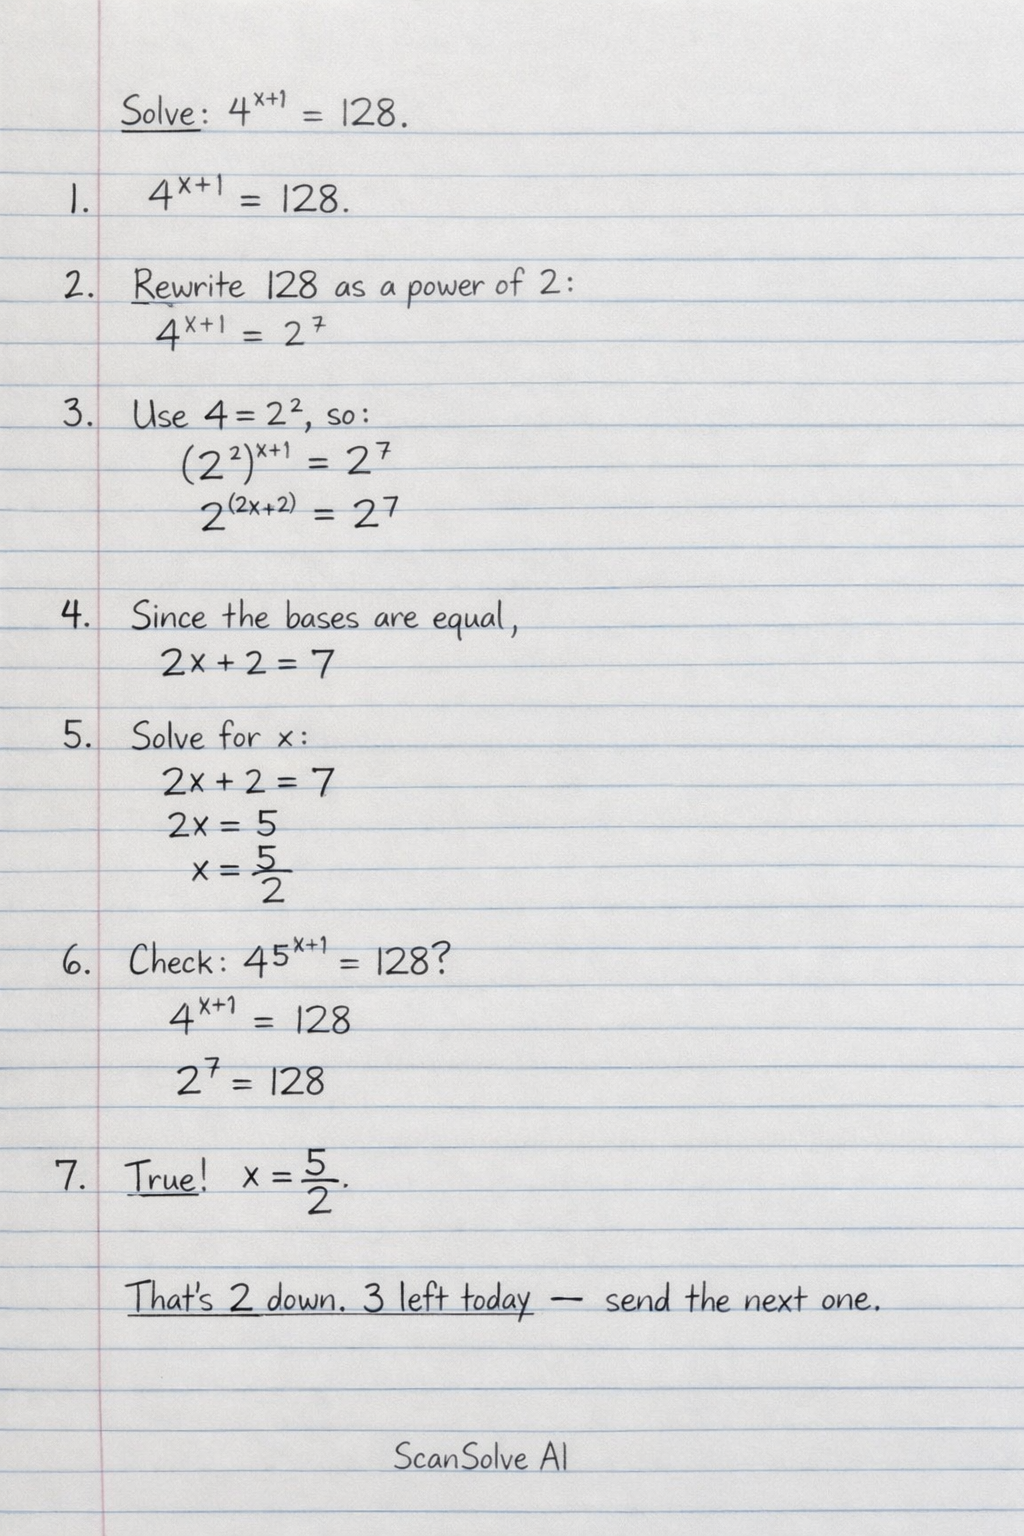 Solve: 4^{x+1} = 128.
1. 4^{x+1} = 128.
2. Rewrite 128 as a power of 2:
4^{x+1} = 2^7
3. Use 4 = 2^2, so:
(2^2)^{x+1} = 2^7
2^{(2x+2)} = 2^7
4. Since the bases are equal,
2x + 2 = 7
5. Solve for x:
2x + 2 = 7
2x = 5
x = \frac{5}{2}
6. Check: 45^{x+1} = 128?
4^{x+1} = 128
2^7 = 128
7. True! x = \frac{5}{2}.
That's 2 down. 3 left today — send the next one.
ScanSolve AI